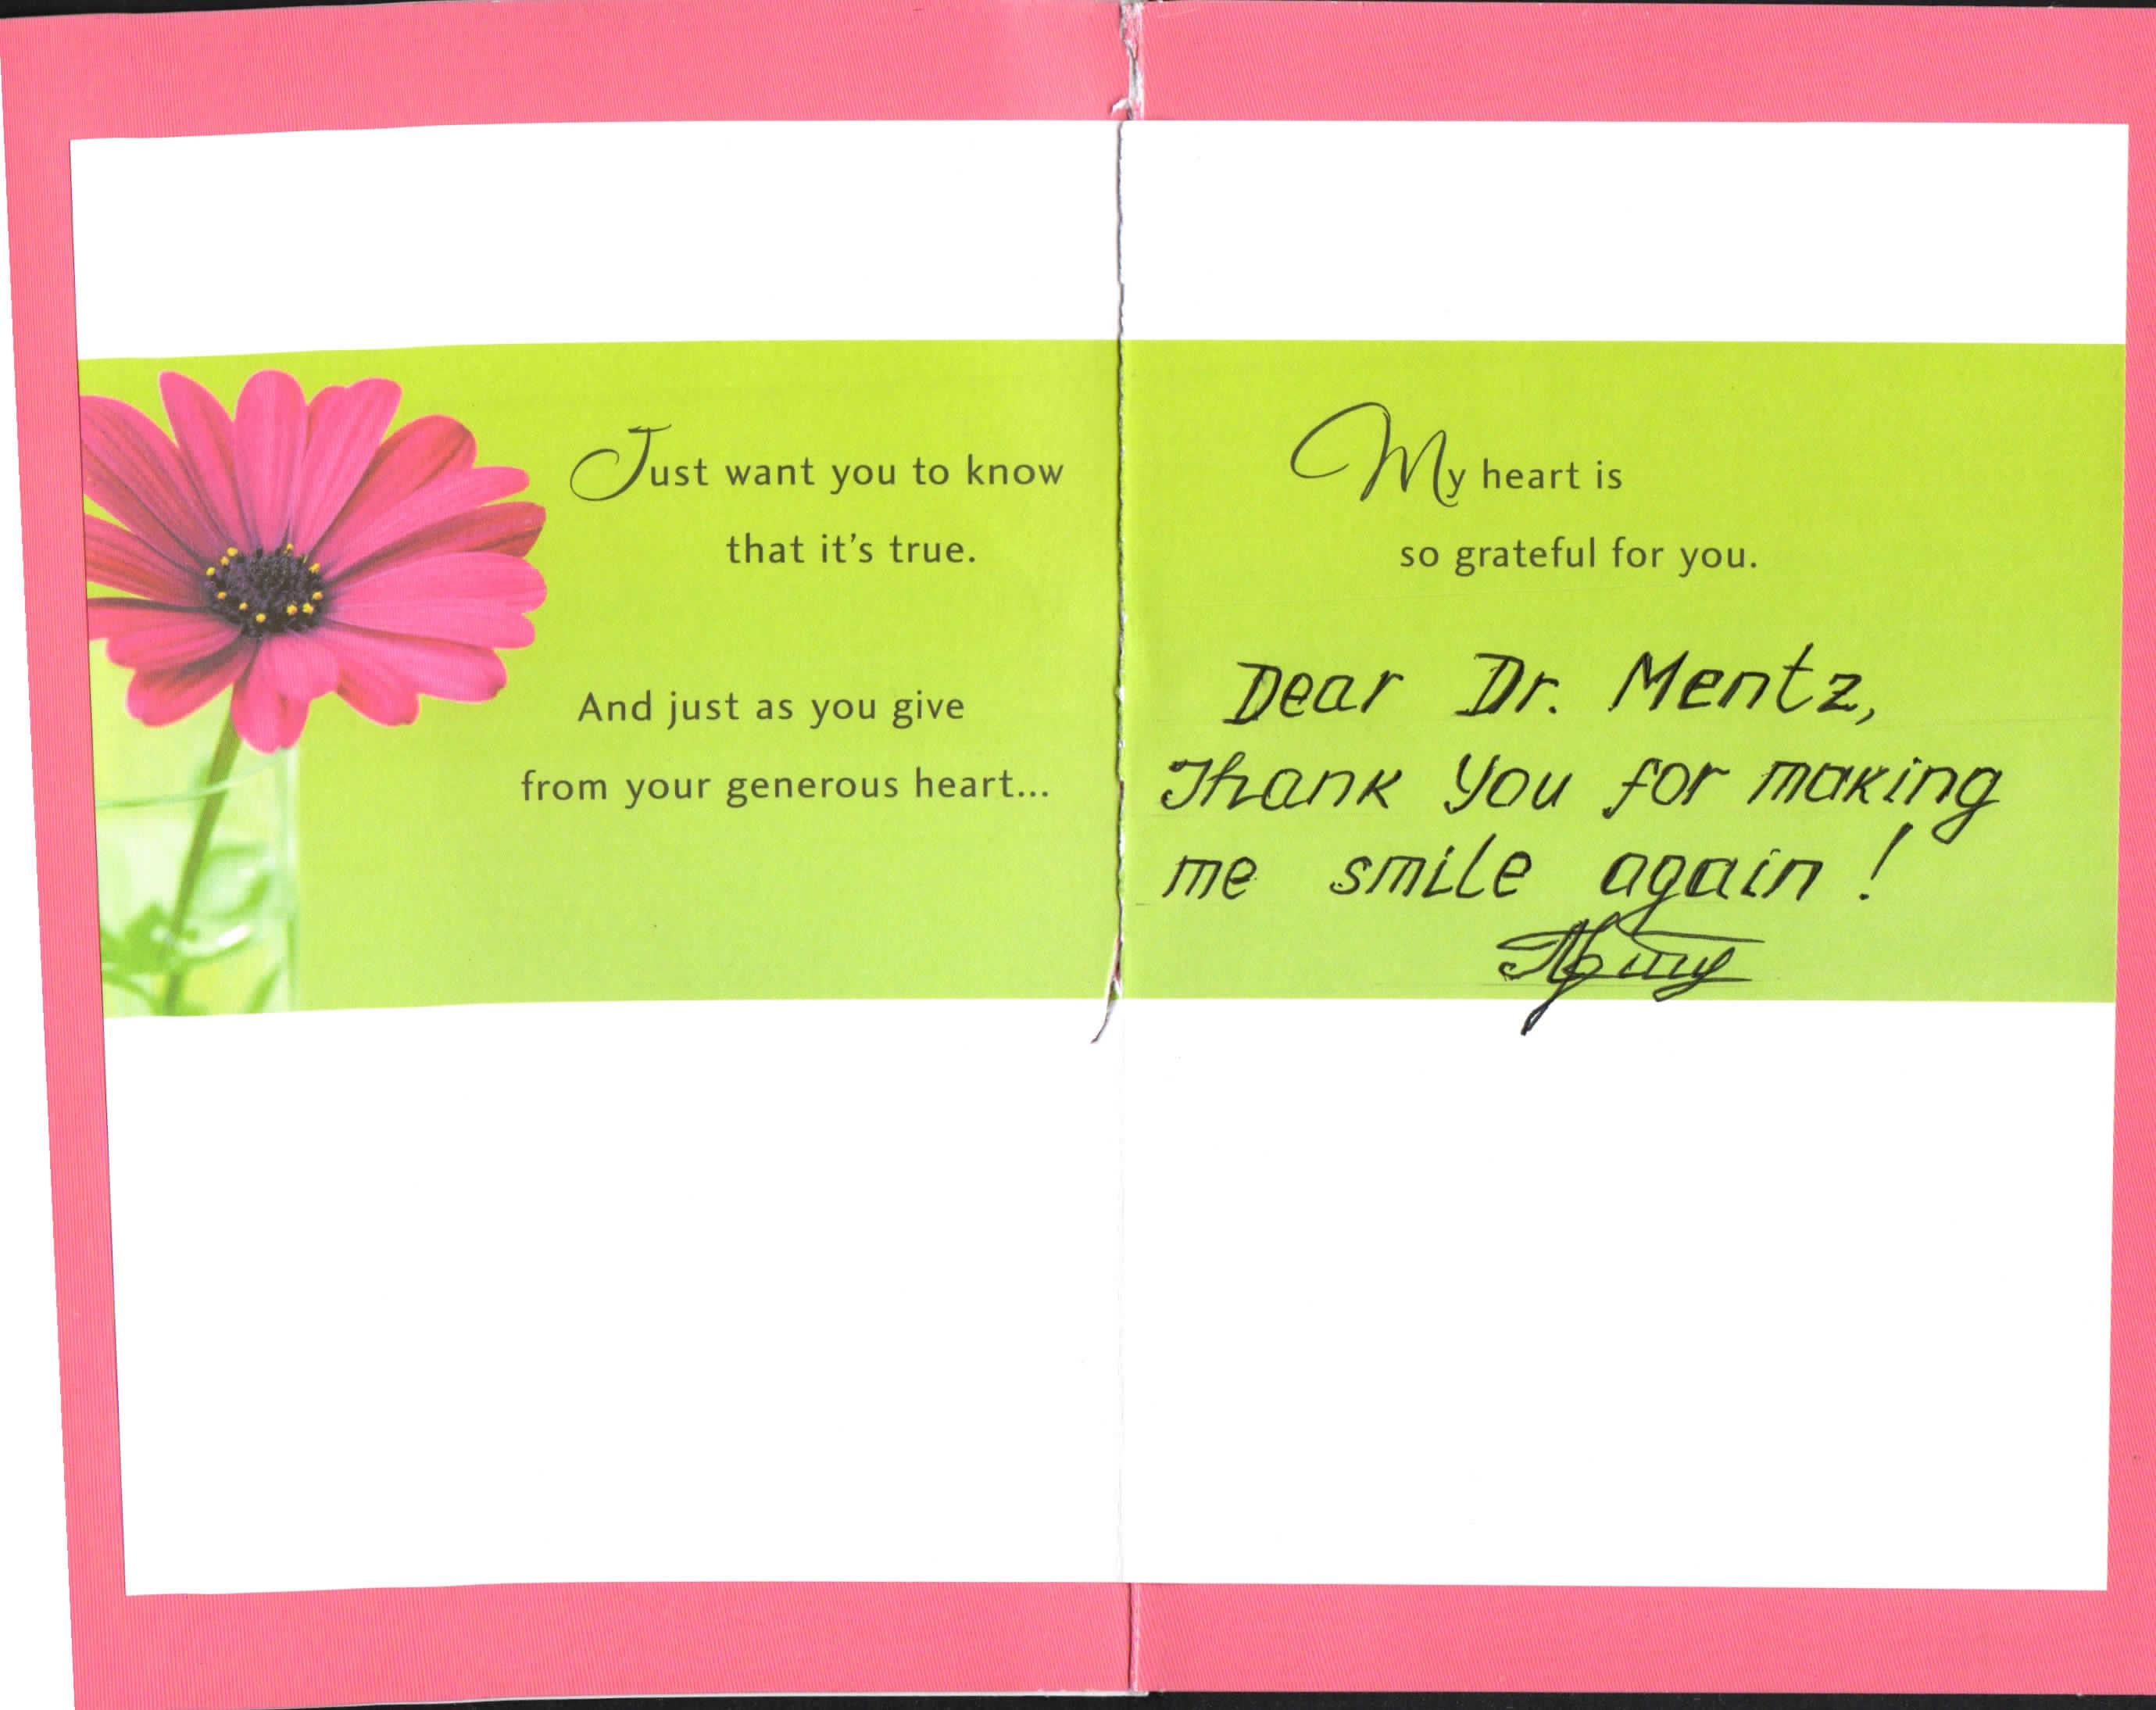 Just want you to know
that it's true.
And just as you give
from your generous heart...
My heart is
so grateful for you.
Dear Dr. Mentz,
Thank you for making
me smile again!